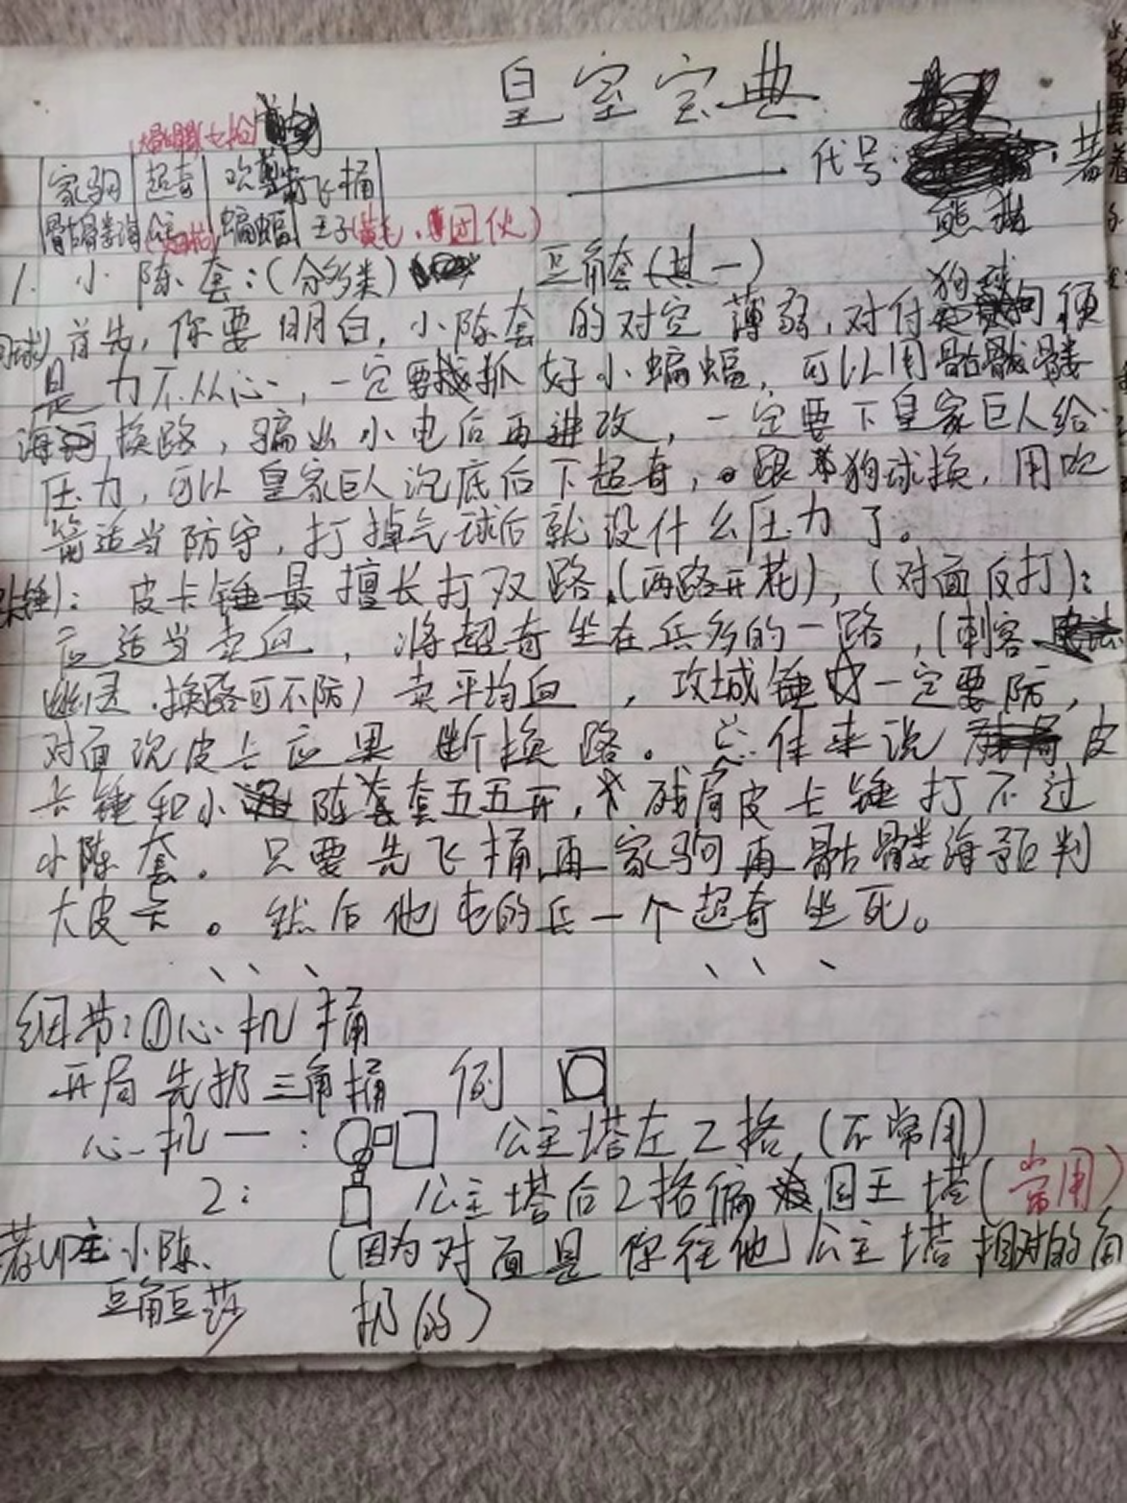 皇室宝典
代号: 熊猫 著
家驹 超奇 吹箭 飞桶
骷髅海 蝙蝠 王子(黄毛、团伙)
1. 小陈套:(分多类) 豆角套(其一)
首先,你要明白,小陈套的对空薄弱,对付狗球便
是力不从心,一定要抓好小蝙蝠,可以用骷骸髅
海换路,骗出小电后再进攻,一定要下皇家巨人给
压力,可以皇家巨人沉底后下超奇,跟狗球换,用吹
箭适当防守,打掉气球后就没什么压力了。
锤):皮卡锤最擅长打双路。(两路开花),(对面反打):
应适当卖血,将超奇坐在兵多的一路,(刺客
幽灵.换路可不防)卖平均血,攻城锤一定要防,
对面沉皮卡应果断换路。总体来说皮
卡锤和小陈套套五五开,残局皮卡锤打不过
小陈套。只要先飞桶,再家驹再骷髅海预判
大皮卡。然后他屯的兵一个超奇坐死。
细节:①心机桶
开局先扔三角桶 例
心机一: 公主塔左2格,(不常用)
2: 公主塔后2格偏国王塔(常用)
著up主小陈、 (因为对面是你往他公主塔相对的角
豆角豆莎 扔的)